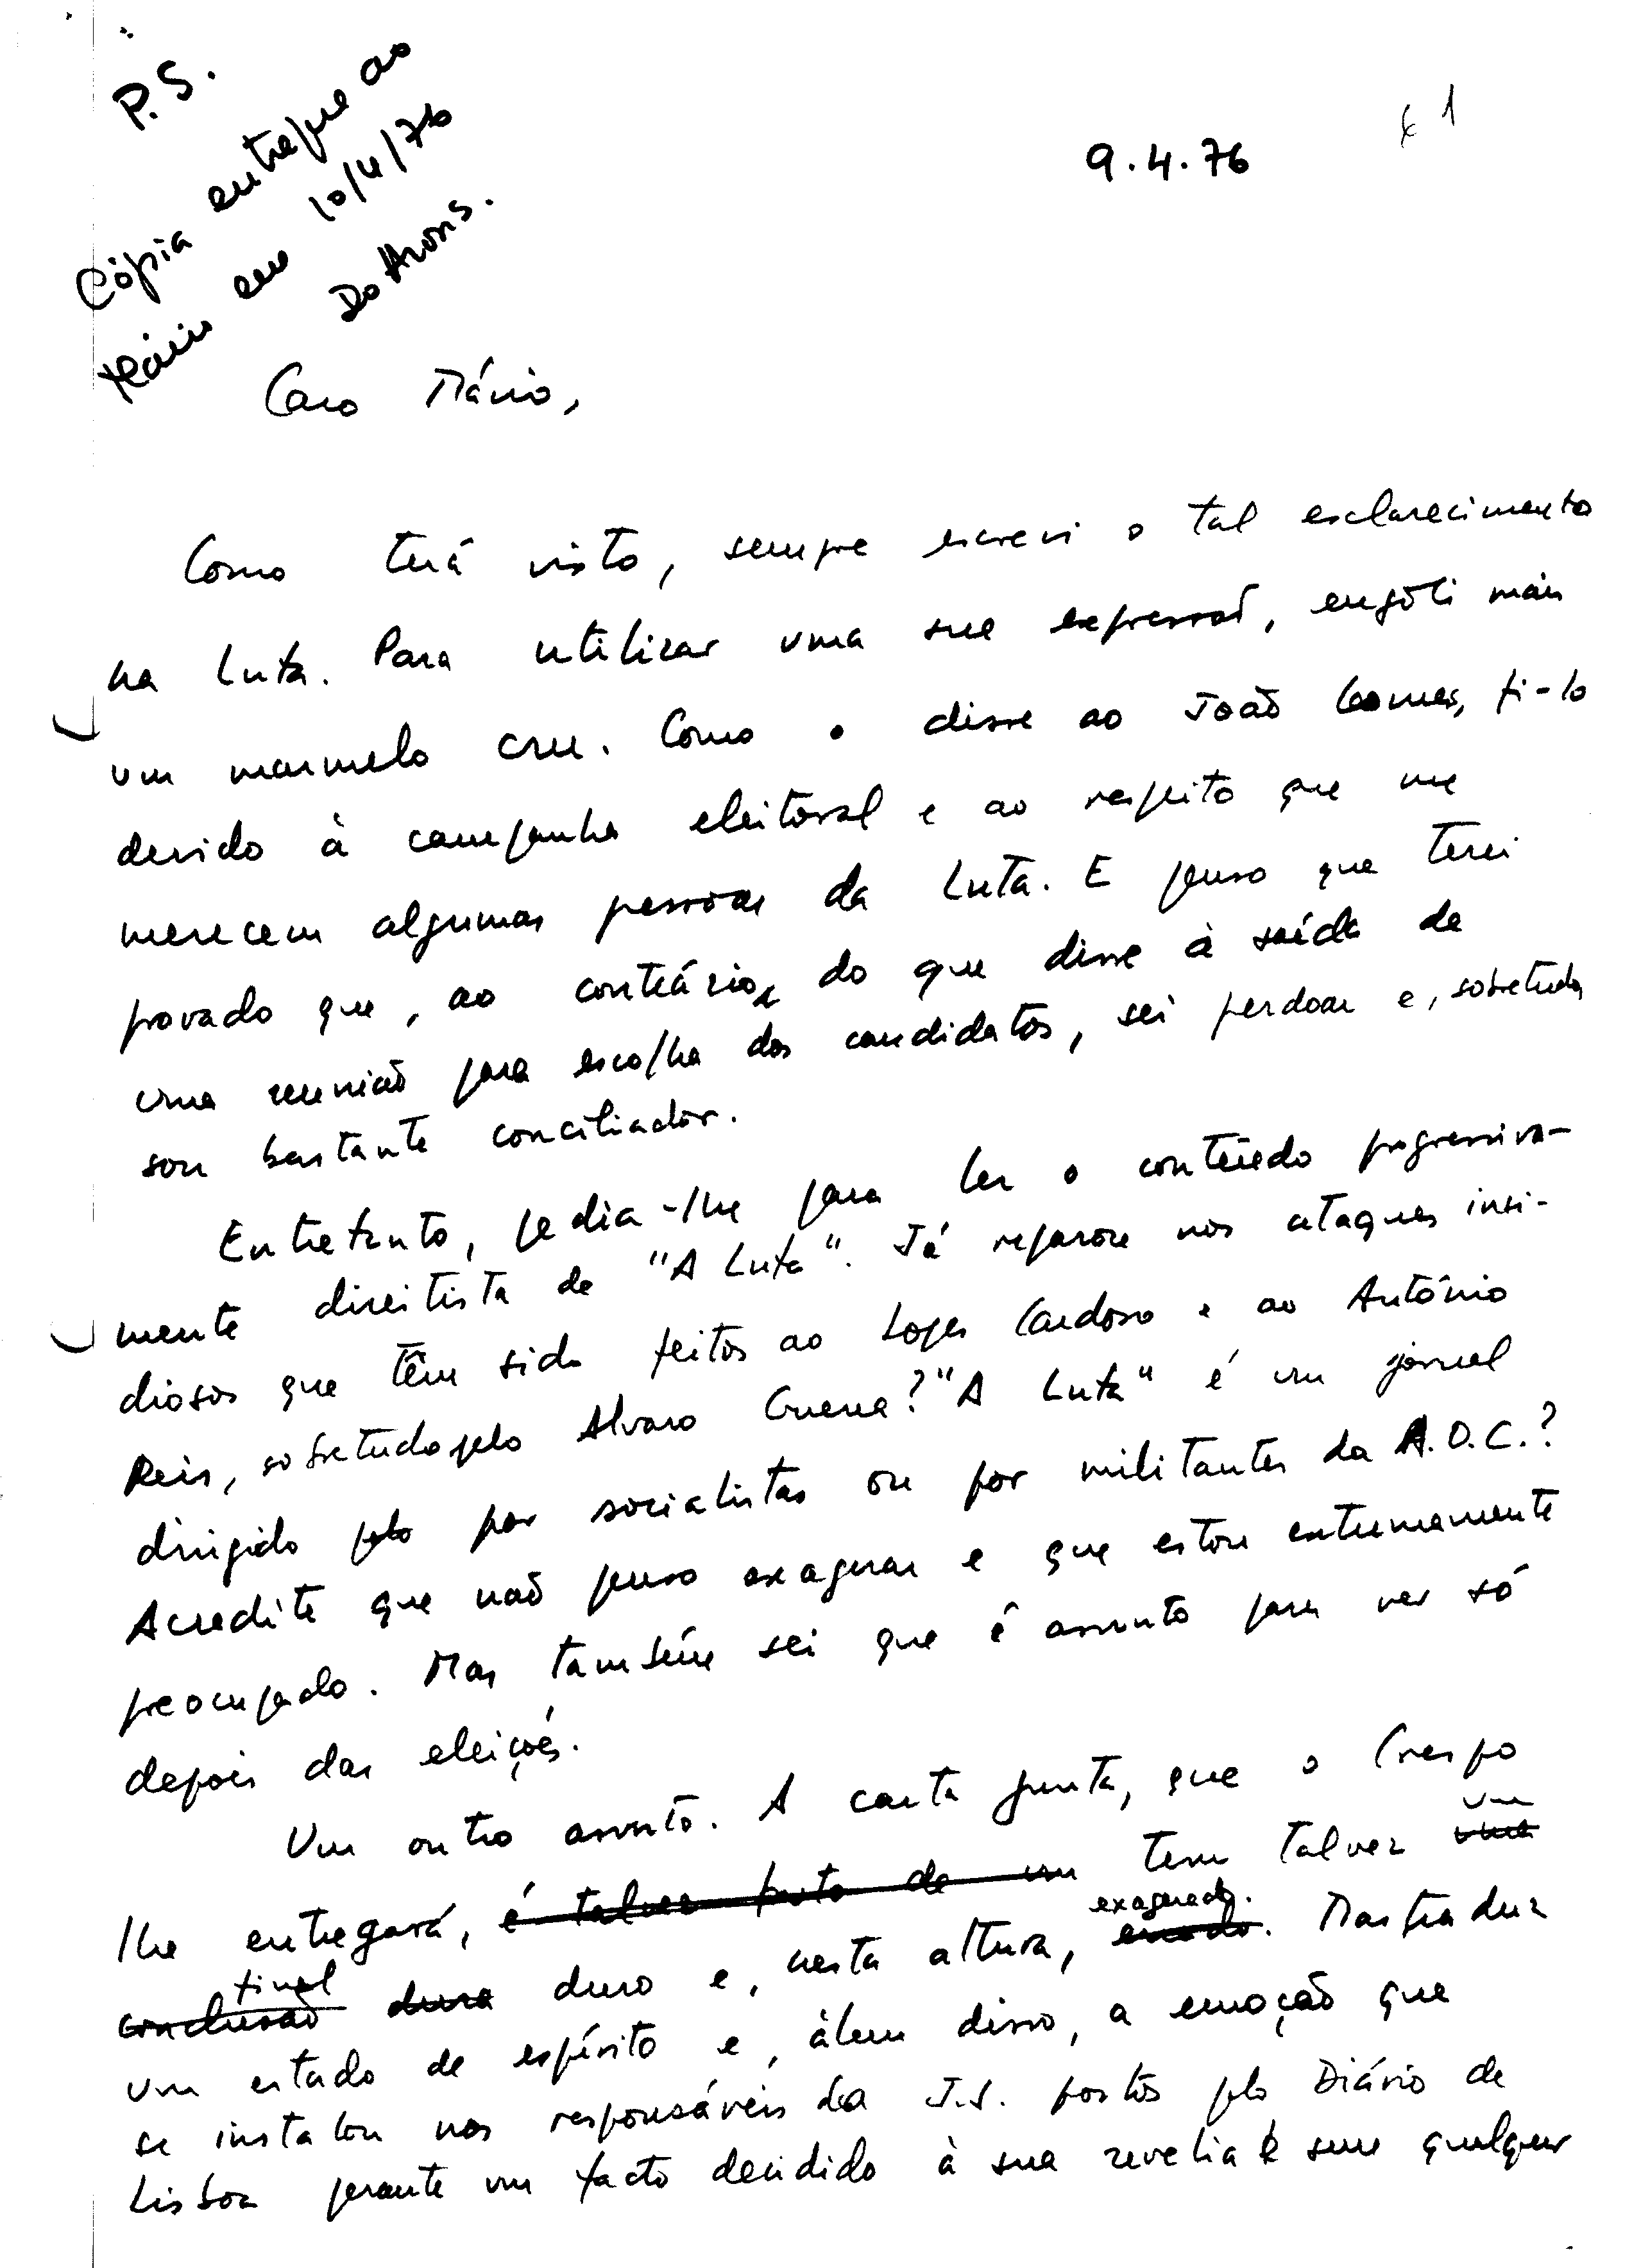 P.S.
Cópia entregue ao
Mário em 10/4/76
Do Arons.
9.4.76
1
Caro Mário,
Como terá visto, sempre escrevi o tal esclarecimento
na Luta. Para utilizar uma sua expressão, engoli mais
um marmelo cru. Como o disse ao João Gomes, fi-lo
devido à campanha eleitoral e ao respeito que me
merecem algumas pessoas da Luta. E penso que terei
provado que, ao contrário, do que disse à saída de
uma reunião para escolha dos candidatos, sei perdoar e, sobretudo,
sou bastante conciliador.
Entretanto, pedia-lhe para ler o conteúdo progressiva-
mente direitista de "A Luta". Já reparou nos ataques insi-
diosos que têm sido feitos ao Lopes Cardoso e ao António
Reis, sobretudo pelo Alvaro Guerra? "A Luta" é um jornal
dirigido pelo por socialistas ou por militantes da A.O.C.?
Acredite que não penso exagerar e que estou extremamente
preocupado. Mas também sei que é assunto para ver só
depois das eleições.
Um outro assunto. A carta junta, que o Crespo
lhe entregará, é talvez fruto de um tem talvez uma um
conclusão final dura duro e, nesta altura, exagerado. Mas traduz
um estado de espírito e, àlem disso, a emoção que
se instalou nos responsáveis da J.S. postos pelo Diário de
Lisboa perante um facto decidido à sua revelia e sem qualquer